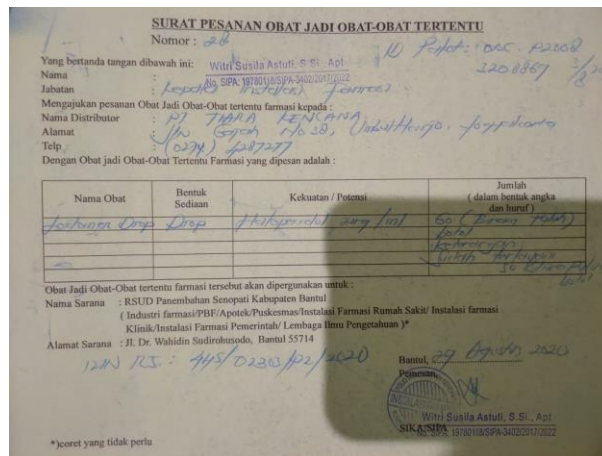 SURAT PESANAN OBAT JADI OBAT-OBAT TERTENTU
Nomor :
Yang bertanda tangan dibawah ini:
Witri Susila Astuti, S.Si., Apt
Nama :
No. SIPA: 19780118/SIPA-3402/2017/2022
Jabatan : Kepala Instalasi Farmasi
Mengajukan pesanan Obat Jadi Obat-Obat tertentu farmasi kepada :
Nama Distributor : PT TIARA KENCANA
Alamat : No 38,
Telp : (0274) 4287277
Dengan Obat jadi Obat-Obat Tertentu Farmasi yang dipesan adalah :
Nama Obat
Bentuk Sediaan
Kekuatan / Potensi
Jumlah
( dalam bentuk angka
dan huruf )
Drop
Drop
Haloperidol, 2mg /ml
botol
Obat Jadi Obat-Obat tertentu farmasi tersebut akan dipergunakan untuk :
Nama Sarana : RSUD Panembahan Senopati Kabupaten Bantul
( Industri farmasi/PBF/Apotek/Puskesmas/Instalasi Farmasi Rumah Sakit/ Instalasi farmasi
Klinik/Instalasi Farmasi Pemerintah/ Lembaga Ilmu Pengetahuan )*
Alamat Sarana : Jl. Dr. Wahidin Sudirohusodo, Bantul 55714
Bantul, 29 Agustus 2020
Pemesan,
Witri Susila Astuti, S.Si., Apt
SIKA/SIPA
No. SIPA: 19780118/SIPA-3402/2017/2022
*)coret yang tidak perlu